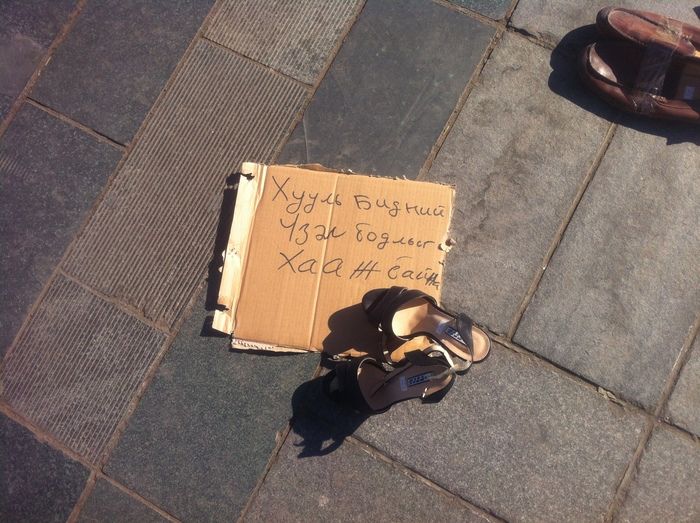 Хууль бидний
Үзэл бодлыг
Хааж байна